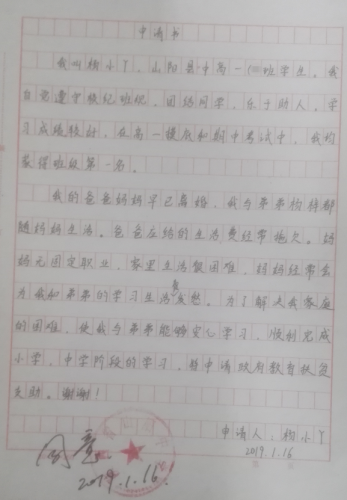 申请书
我叫杨小丫,山阳县中高一(10)班学生。我
自觉遵守校纪班规,团结同学,乐于助人。学
习成绩较好,在高一摸底和期中考试中,我均
获得班级第一名。
我的爸爸妈妈早已离婚,我与弟弟杨锌都
随妈妈生活。爸爸应给的生活费经常拖欠。妈
妈无固定职业,家里生活很困难,妈妈经常会
为我和弟弟的学习生活费发愁。为了解决我家庭
的困难,使我与弟弟能够安心学习,顺利完成
小学,中学阶段的学习,特申请政府教育扶贫
资助。谢谢!
申请人:杨小丫
2019.1.16
同意
2019.1.16!